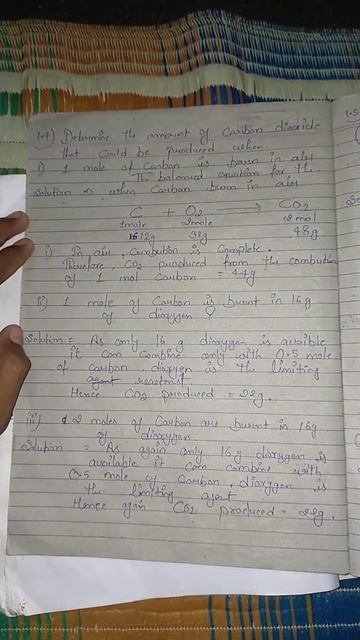 1.4) Determine the amount of Carbon dioxide
that Could be produced when.
i) 1 mole of Carbon is burn in air
The balanced equation for the
Solution ⇒ when Carbon burn in air
C + O2 → CO2
1mole 2mole 2 mol
12g 32g 48g
i) In air, Combution is Complete.
Therefore, CO2 produced from the combution
of 1 mol Carbon = 44g
ii) 1 mole of Carbon is burnt in 16g
of dioxygen ?
Solution = As only 16 g dioxygen is avaible
it can combine only with 0.5 mole
of carbon, dioxygen is the limiting
agent reactant
Hence CO2 produced = 22g.
iii) 2 moles of Carbon are burnt in 16g
of dioxygen
Solution = As again only 16g dioxygen is
available it can combine with
0.5 mole of Carbon, dioxygen is
the limiting agent
Hence again CO2 produced = 22g.
1.5